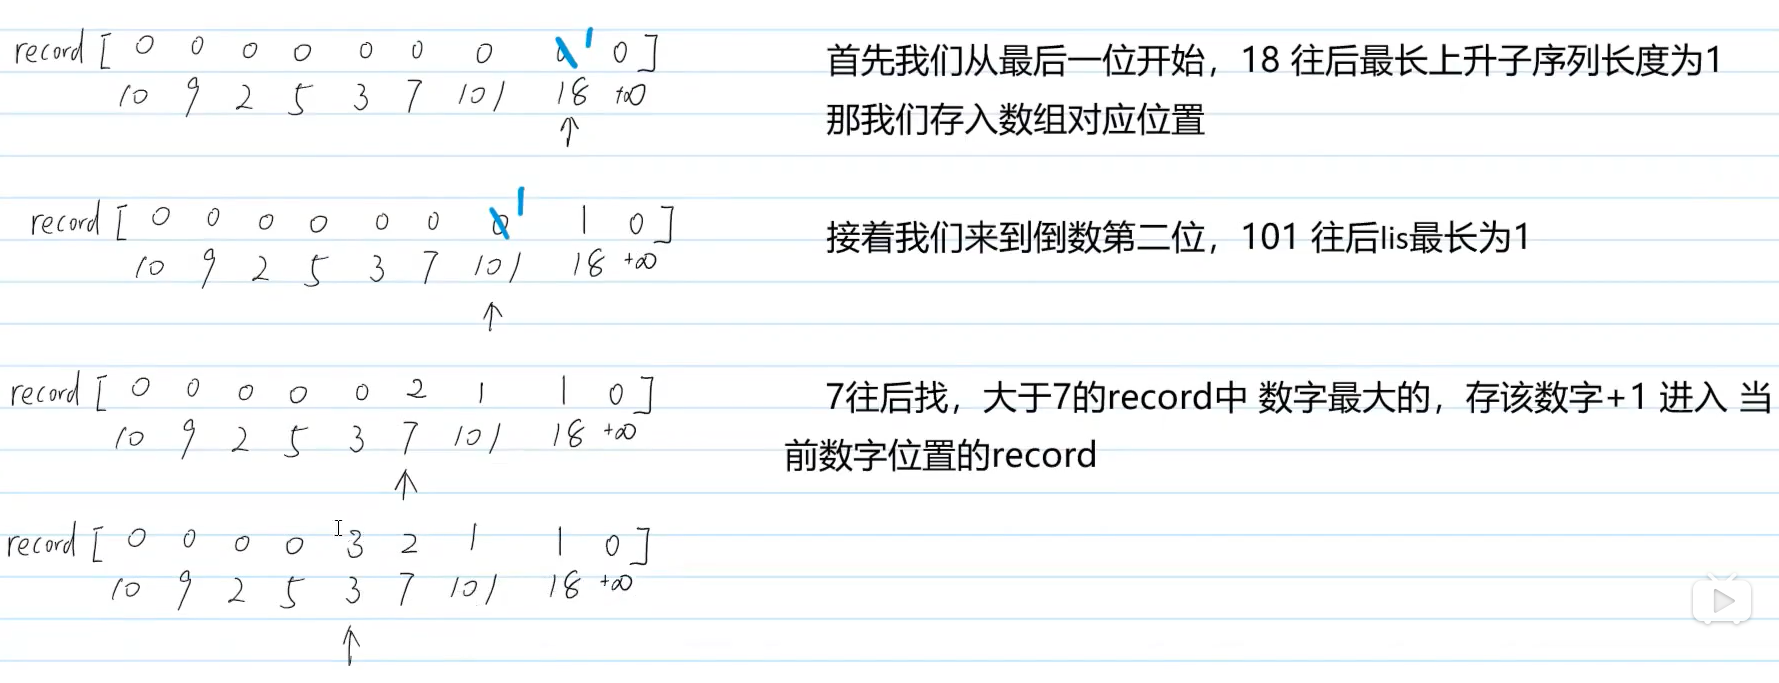 record [ 0 0 0 0 0 0 0 0 1 0 ]
10 9 2 5 3 7 101 18 +∞
首先我们从最后一位开始，18 往后最长上升子序列长度为1
那我们存入数组对应位置
record [ 0 0 0 0 0 0 0 1 1 0 ]
10 9 2 5 3 7 101 18 +∞
接着我们来到倒数第二位，101 往后lis最长为1
record [ 0 0 0 0 0 2 1 1 0 ]
10 9 2 5 3 7 101 18 +∞
7往后找，大于7的record中 数字最大的，存该数字+1 进入 当
前数字位置的record
record [ 0 0 0 0 3 2 1 1 0 ]
10 9 2 5 3 7 101 18 +∞